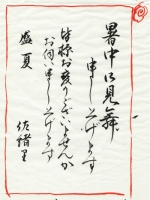 暑中お見舞
申し上げます
皆様お変りございませんか
お伺い申し上げます
盛夏
佐緒里